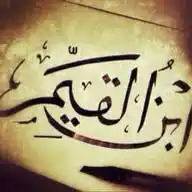 ابن القيّم